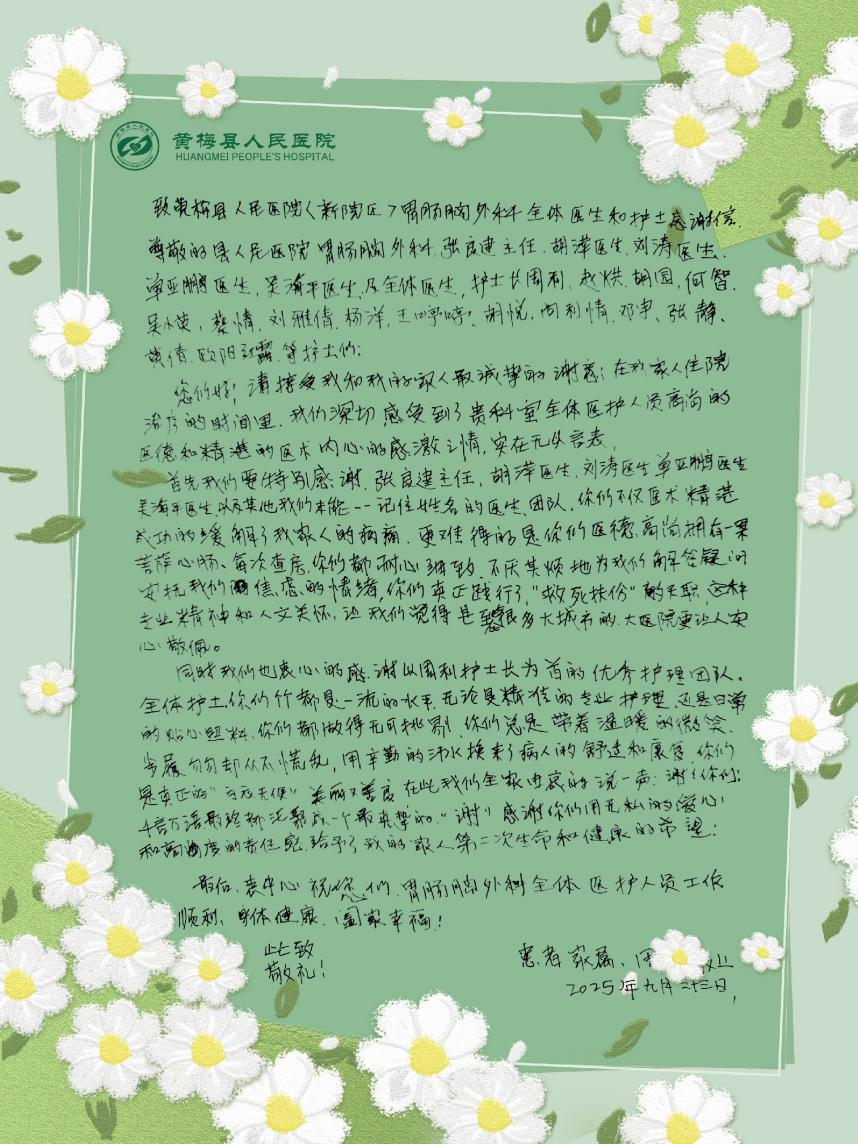 黄梅县人民医院
HUANGMEI PEOPLE'S HOSPITAL
致黄梅县人民医院<新院区>胃肠胸外科全体医生和护士感谢信
尊敬的县人民医院胃肠胸外科,张良建主任.胡萍医生.刘涛医生.
单亚鹏医生,吴海平医生.及全体医生,护士长周利.赵烘.胡园,何智.
吴小英,蔡情.刘雅倩.杨洋,王婷婷、胡悦,向利情.邓宇、张静、
黄倩.欧阳红露.等护士们:
您们好!请接受我和我的家人最诚挚的谢意!在我家人住院
治疗的时间里.我们深切感受到了贵科室全体医护人员高尚的
医德和精湛的医术内心的感激之情,实在无以言表,
首先我们要特别感谢,张良建主任,胡萍医生.刘涛医生单亚鹏医生
吴海平医生以及其他我们未能一一记住姓名的医生.团队.你们不仅医术精湛
成功的缓解了我家人的病痛.更难得的是你们医德高尚拥有一颗
菩萨心肠、每次查房.你们都耐心细致.不厌其烦地为我们解答疑问
安抚我们焦虑的情绪,你们真正践行了,"救死扶伤"的天职,这种
专业精神和人文关怀.让我们觉得是很多大城市的.大医院更让人安
心敬佩。
同时我们也衷心的感谢以周利护士长为首的优秀护理团队.
全体护士.你们个都是一流的水平.无论是精准的专业护理.还是日常
的贴心照料.你们都做得无可挑剔.你们总是带着温暖的微笑.
步履匆匆却从不慌乱,用辛勤的汗水换来了病人的舒适和康复.你们
是真正的"白衣天使"美丽又善良在此我们全家由衷的说一声:谢谢你们!
千言万语最终都汇聚成一个最真挚的."谢"感谢你们用无私的爱心
和高度的责任感.给予了我的家人第二次生命和健康的希望!
最后.衷心祝您们.胃肠胸外科全体医护人员工作
顺利、身体健康.阖家幸福!
此致
敬礼!
患者家属、
2025年九月二十三日,